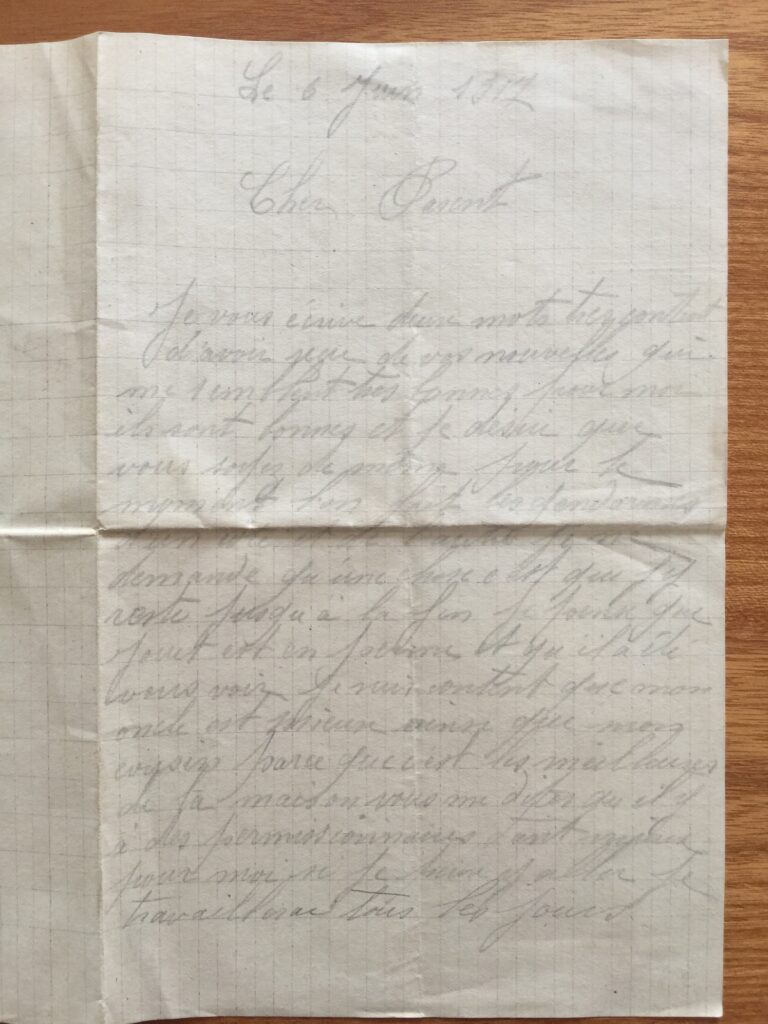 Le 6 Juin 1917
Cher Parent
Je vous écrive deux mots très content
d'avoir reçue de vos nouvelles qui
me semblent très bonnes pour moi
ils sont bonnes et je désire que
vous soyez de même pour le
moment
demande qu'une chose c'est que j'y
reste jusqu'à la fin je pense que
est en perme et qu'il a été
vous voir je suis content que mon
oncle est ainsi que mon
cousin parce que c'est les meilleures
de la maison vous me dites qu'il y
à des permissionnaires tant mieux
pour moi si je aller je
travaillerai tous les jours